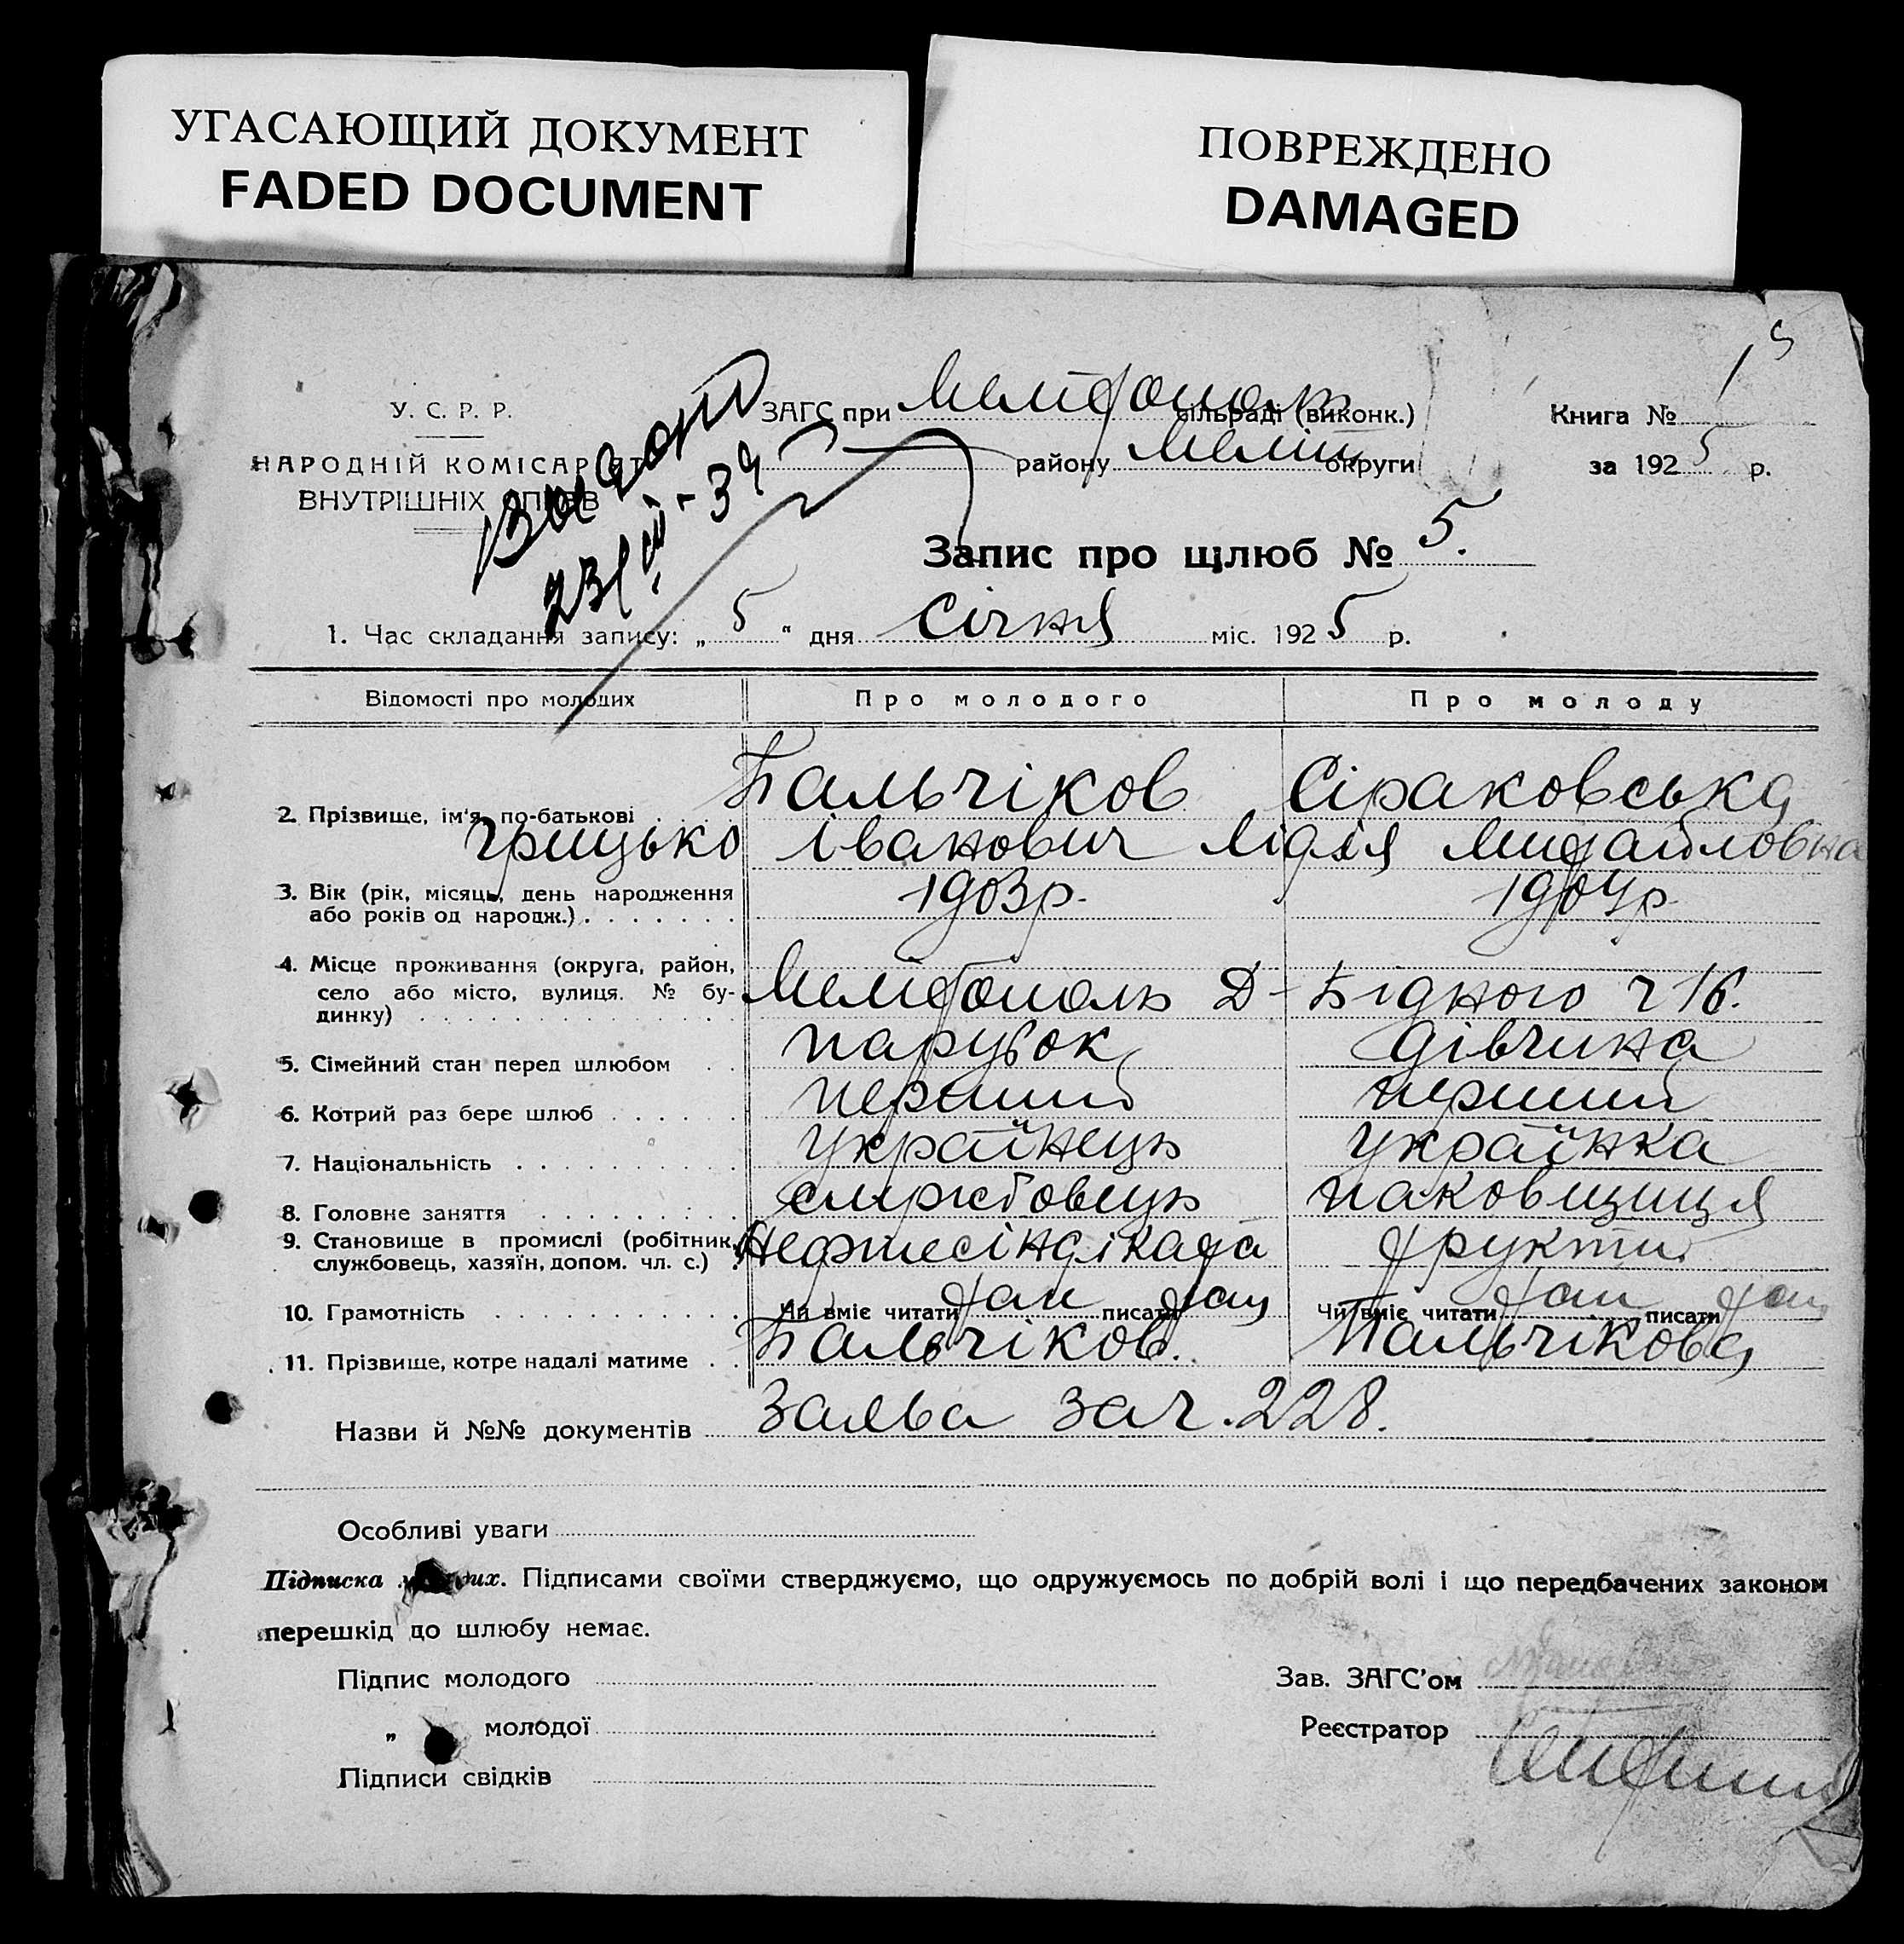 УГАСАЮЩИЙ ДОКУМЕНТ
FADED DOCUMENT
ПОВРЕЖДЕНО
DAMAGED
5
У. С. Р. Р.
НАРОДНІЙ КОМІСАРІЯТ
ВНУТРІШНІХ СПРАВ
ЗАГС при Мелітополь сільраді (виконк.)
району Меліт округи
Книга № 1
за 1925 р.
Запис про щлюб № 5.
1. Час складання запису: „ 5 “ дня Січня міс. 1925 р.
Відомості про молодих Про молодого Про молоду
2. Прізвище, ім'я, по-батькові . . . . Пальчіков Сіраковська
Грицько Іванович Лідія Михайловна
3. Вік (рік, місяць, день народження або років од народж.) . . . . . . . 1903р. 1904р
4. Місце проживання (округа, район,
село або місто, вулиця. № бу-
динку) . . . . . . . . Мелітополь Д-Бідного ч 16.
5. Сімейний стан перед шлюбом . . парубок дівчина
6. Котрий раз бере шлюб . . . . . . перший перший
7. Національність . . . . . . . . . українець українка
8. Головне заняття . . . . . . . . службовець паковщиця
9. Становище в промислі (робітник,
службовець, хазяїн, допом. чл. с.) . Нефтесіндіката фруктів
10. Грамотність . . . . . . . . . . Чи вміє читати так писати так Чи вміє читати так писати так
11. Прізвище, котре надалі матиме . . Пальчіков. Пальчікова
Назви й №№ документів Заява зач. 228.
Особливі уваги
Підписка молодих. Підписами своїми стверджуємо, що одружуємось по добрій волі і що передбачених законом
перешкід до шлюбу немає.
Підпис молодого
Зав. ЗАГС'ом
„ молодої
Реєстратор
Підписи свідків